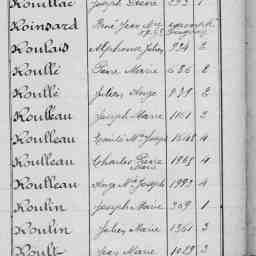 Rouillac Joseph Pierre 293 1
Roinsard René Jean
Roulais Alphonse Julien 924 2
Roullé Pierre Marie 686 2
Roullé Julien Ange 939 2
Roulleau Joseph Marie 1101 2
Roulleau Emile Mie Joseph 1648 4
Roulleau Charles Pierre Marie 1968 4
Roulleau Ange Mie Joseph 1993 4
Roulin Joseph Marie 369 1
Roulin Julien Marie 1361 3
Roult Jean Marie 1089 2